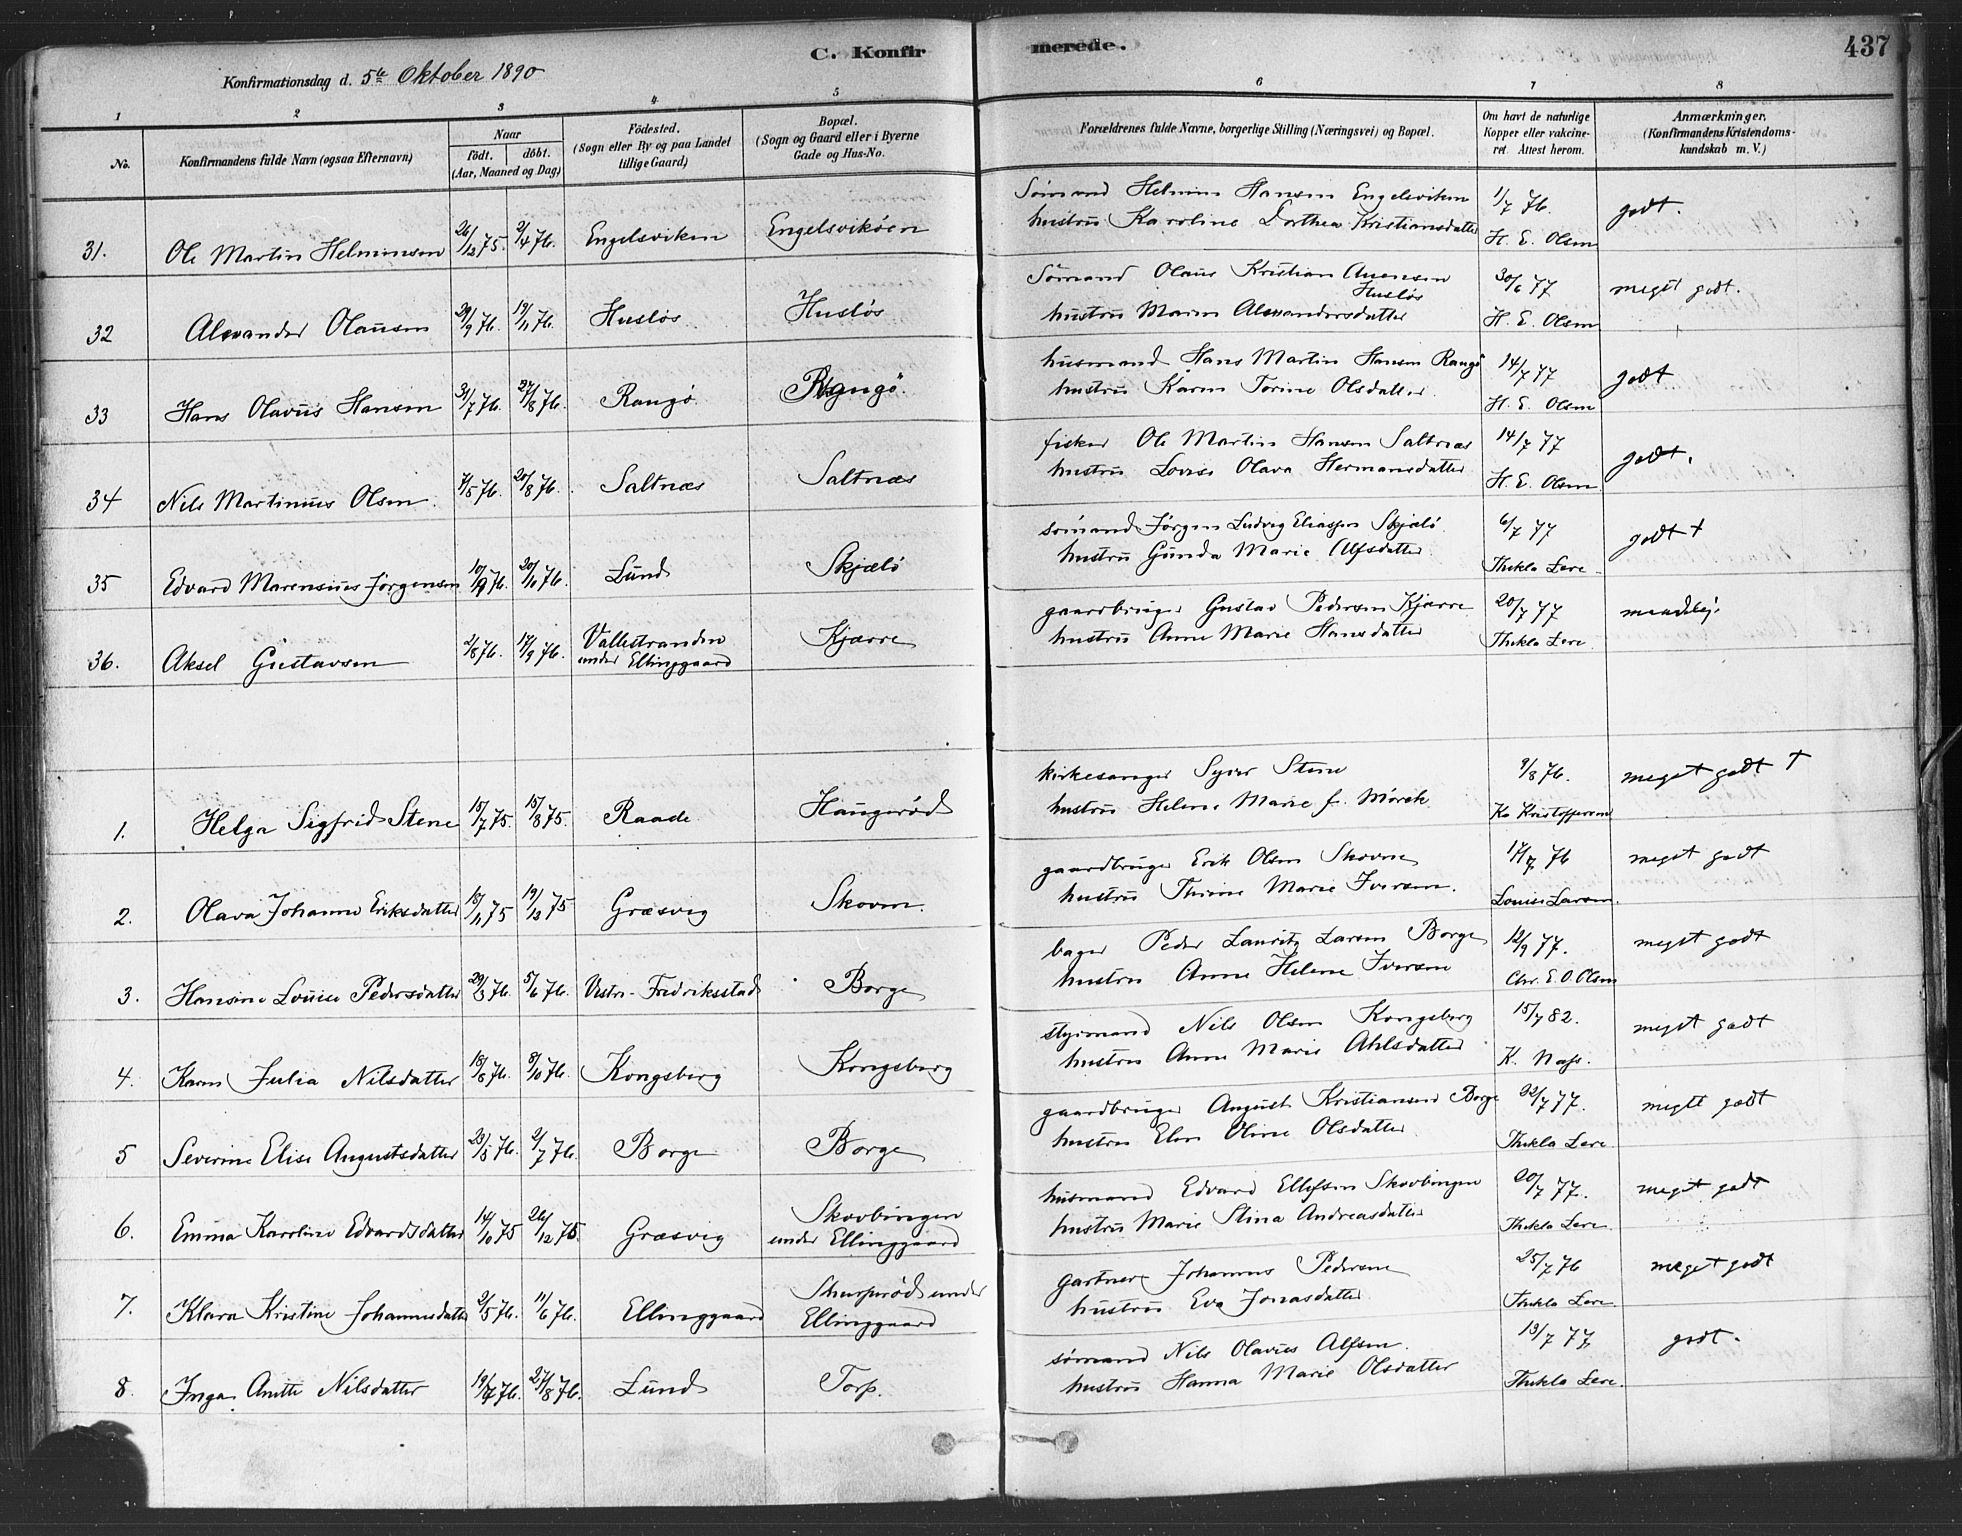 C. Konfirmerede.
437
Konfirmationsdag d. 5te Oktober 1890
1 2 3 4 5 6 7 8
No.
Konfirmandens fulde Navn (ogsaa Efternavn)
Naar
födt. döbt.
(Aar, Maaned og Dag)
Födested.
(Sogn eller By og paa Landet
tillige Gaard)
Bopæl.
(Sogn og Gaard eller i Byerne
Gade og Hus-No.
Forældrenes fulde Navne, borgerlige Stilling (Næringsvei) og Bopæl.
Om havt de naturlige
Kopper eller vakcine-
ret. Attest herom.
Anmærkninger.
(Konfirmandens Kristendoms-
kundskab m. V.)
31. Ole Martin Helminsen 26/12 75. 2/4 76. Engelsviken Engelsvikøen
Sømand Helmin Hansen Engelsviken 1/7 76. godt.
hustru Karoline Dorthea Kristiansdatter H. E. Olsen
32 Alexander Olausen 29/9 76. 19/11 76. Husløs Husløs
Sømand Olaus Kristian Husløs 30/6 77 meget godt.
hustru Maren Alexandersdatter H. E. Olsen
33 Hans Olavus Hansen 31/7 76. 27/8 76. Rangø Rangø.
husmand Hans Martin Hansen Rangø 14/7 77 godt
hustru Karen Torine Olsdatter. H. E. Olsen
34 Nils Martinius Olsen. 7/5 76. 20/8 76. Saltnæs Saltnæs
fisker Ole Martin Hansen Saltnæs 14/7 77 godt.
hustru Lovise Olava Hermansdatter H. E. Olsen
35 Edvard Marensius Jørgensen 10/9 76. 20/11 76. Lund Skjælø
sømand Jørgen Ludvig Eliassen Skjælø 6/7 77 godt +
hustru Gunda Marie Alfsdatter Thekla Lere
36. Aksel Gustavsen 2/8 76. 17/9 76. Vallestranden under Ellinggaard Kjærre
gaardbruger Gustav Pedersen Kjærre 20/7 77
hustru Anne Marie Hansdatter Thekla Lere
1. Helga Sigfrid Stene 15/7 75. 15/8 75. Raade Haugerød
kirkesanger Syver Stene 9/8 76. meget godt †
hustru Helene Marie f. Mørch Ka Kristoffersen
2. Olava Johanne Eriksdatter 18/11 75 19/12 75 Græsvig Skoven.
gaardbruger Erik Olsen Skoven 17/7 76 meget godt
hustru Thrine Marie Iversen. Louise Larsen.
3. Hansine Louise Pedersdatter 29/3 76. 5/6 76. Vestre-Fredriksstad Borge
bager Peder Lauritz Larsen Borge 12/9 77. meget godt
hustru Anne Helene Iversen Chr. E. O. Olsen
4. Karen Julia Nilsdatter 18/8 76. 8/10 76. Kongsberg Kongsberg
styrmand Nils Olsen Kongsberg 15/7 82. meget godt
hustru Anne Marie Ahlsdatter K. Næss.
5 Severine Elise Augustsdatter 23/5 76. 2/7 76. Borge Borge
gaardbruger August Kristiansen Borge 22/7 77. meget godt
hustru Elen Oline Olsdatter Thekla Lere
6. Emma Karoline Edvardsdatter 14/10 75 26/12 75. Græsvig Skovbingen under Ellinggaard
husmand Edvard Ellefsen Skovbingen 20/7 77. meget godt
hustru Marie Stina Andreasdatter Thekla Lere
7. Klara Kristine Johannesdatter 2/5 76. 11/6 76. Ellinggaard Skurperød under Ellinggaard
gartner Johannes Pedersen 25/7 76 meget godt
hustru Eva Jonasdatter Thekla Lere
8. Inga Anitte Nilsdatter 19/7 76. 27/8 76. Lund Torp.
sømand Nils Olavus Alfsen. 13/7 77 godt.
hustru Hanna Marie Olsdatter Thekla Lere.